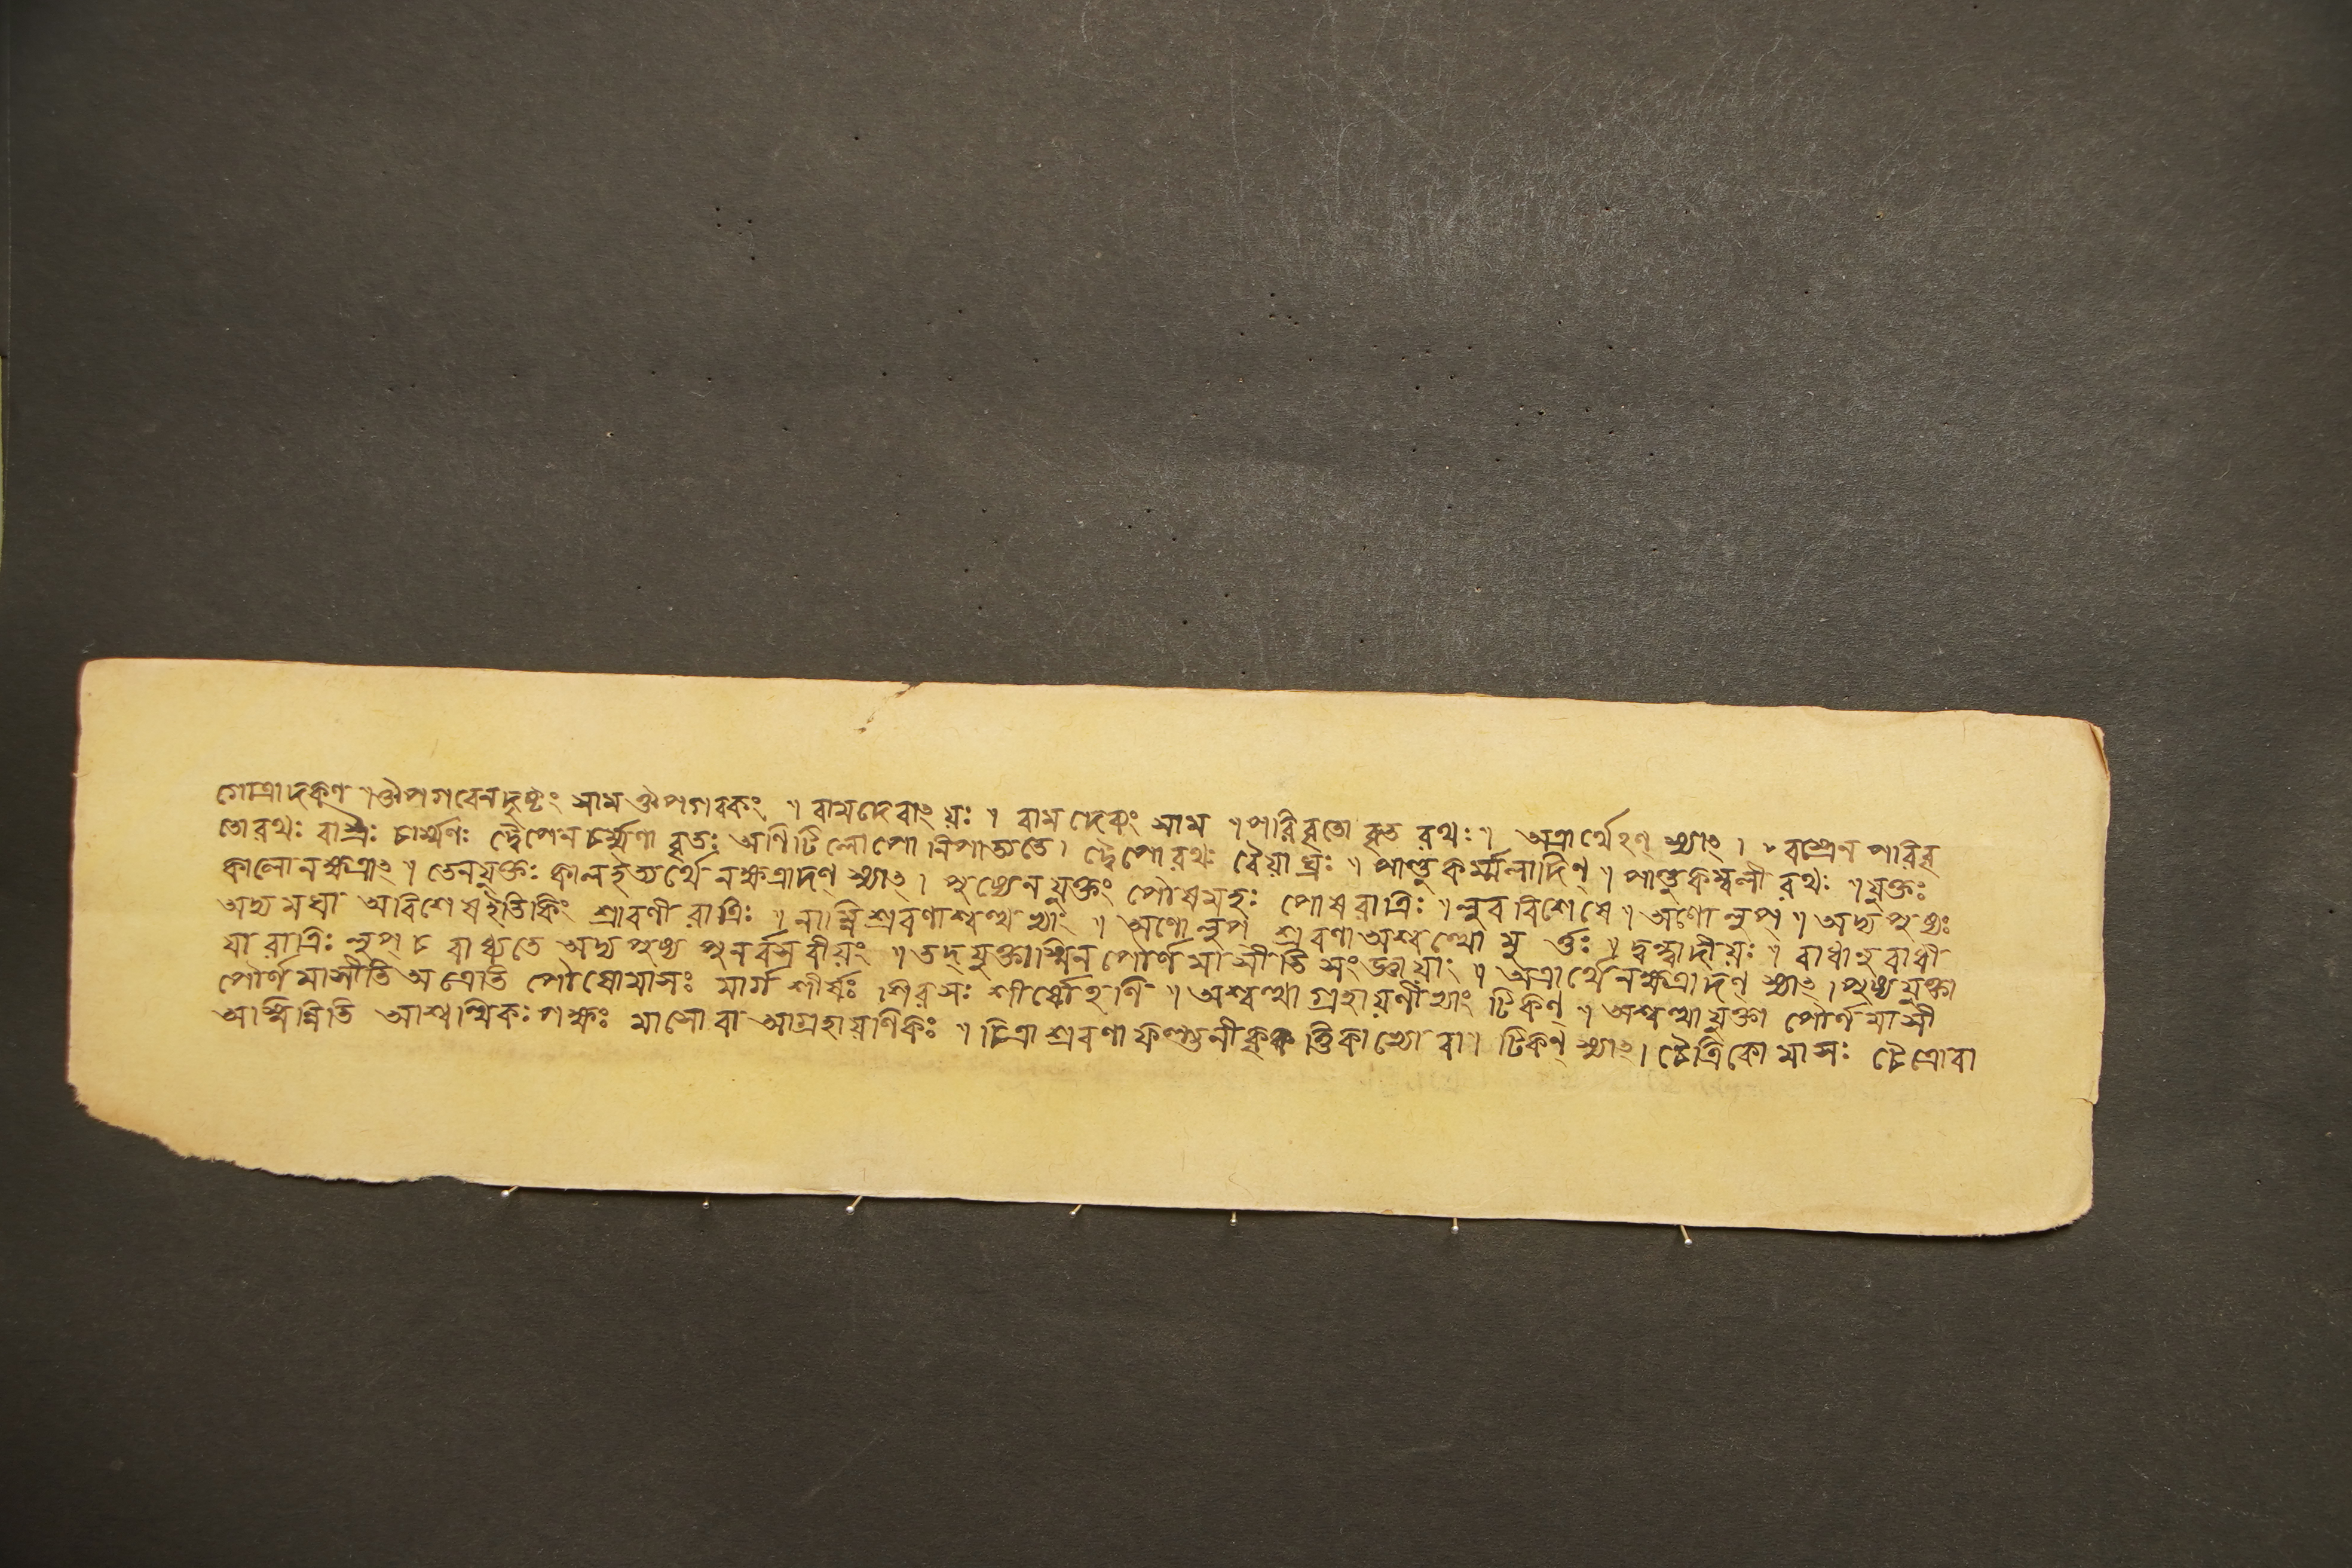 গোত্রাদকণ্ ৷ ঔপগবেনদৃষ্টং সাম ঔপগবকং ৷৷ বামদেবাৎ য়ঃ ৷৷ বামদেব্যং সাম ৷৷ পরিবৃতো বৃত রথঃ ৷৷ অত্রার্থেঽণ্ স্যাৎ ৷ বস্ত্রেন পরিবৃ
তো রথঃ বাস্ত্রঃ চার্ম্মণঃ দ্বৈপেন চর্ম্মণা বৃতঃ অণি টি লোপো নিপাত্যতে ৷ দ্বৈপো রথঃ বৈয়াঘ্রঃ ৷৷ পাণ্ডুকর্ম্মলাদিন্ ৷৷ পাণ্ডুকম্বলী রথঃ ৷৷ যুক্তঃ
কালো নক্ষত্রাৎ ৷৷ তেনযুক্তঃ কালইত্যর্থে নক্ষত্রাদণ্ স্যাৎ ৷ পুষ্যেন যুক্তং পৌষমহঃ পৌষ রাত্রিঃ ৷৷ লুব বিশেষে ৷৷ অণো লুপ্ ৷৷ অদ্য পুষ্যঃ
অদ্য মঘা অবিশেষইতিকিং শ্রাবণী রাত্রিঃ ৷৷ নাম্নি শ্রবণাশ্বত্থাভ্যাং ৷৷ অণো লুপ্ শ্রবণা অশ্বত্থো মুর্ত্তঃ ৷৷ দ্বন্দ্বাদীয়ঃ ৷৷ রাধানুরাধী
যা রাত্রিঃ লুপ্ চ বাধ্যতে অদ্য পুষ্য পুনর্বসবীয়ং ৷৷ তদ্ যুক্তাস্মিন পৌর্ণমাসীতি সংজ্ঞায়াং ৷৷ অত্রার্থে নক্ষত্রাদণ্ স্যাৎ ৷ পুষ্যযুক্তা
পৌর্ণমাসীতি অত্রেতি পৌষোমাসঃ মার্গ শীর্ষঃ শিরসঃ শীর্ষোঽণি ৷৷ অশ্বত্থাগ্রহায়ণীভ্যাং টিকণ্ ৷৷ অশ্বত্থাযুক্তা পৌর্ণমাসী
অস্মিন্নিতি আশ্বত্থিকঃ পক্ষঃ মাসো বা আগ্রহায়ণিকঃ ৷৷ চিত্রা শ্রবণা ফল্গুনী কৃত্তিকাভ্যো বা ৷ টিকণ্ স্যাৎ ৷ চৈত্রিকো মাসঃ চৈত্রোবা